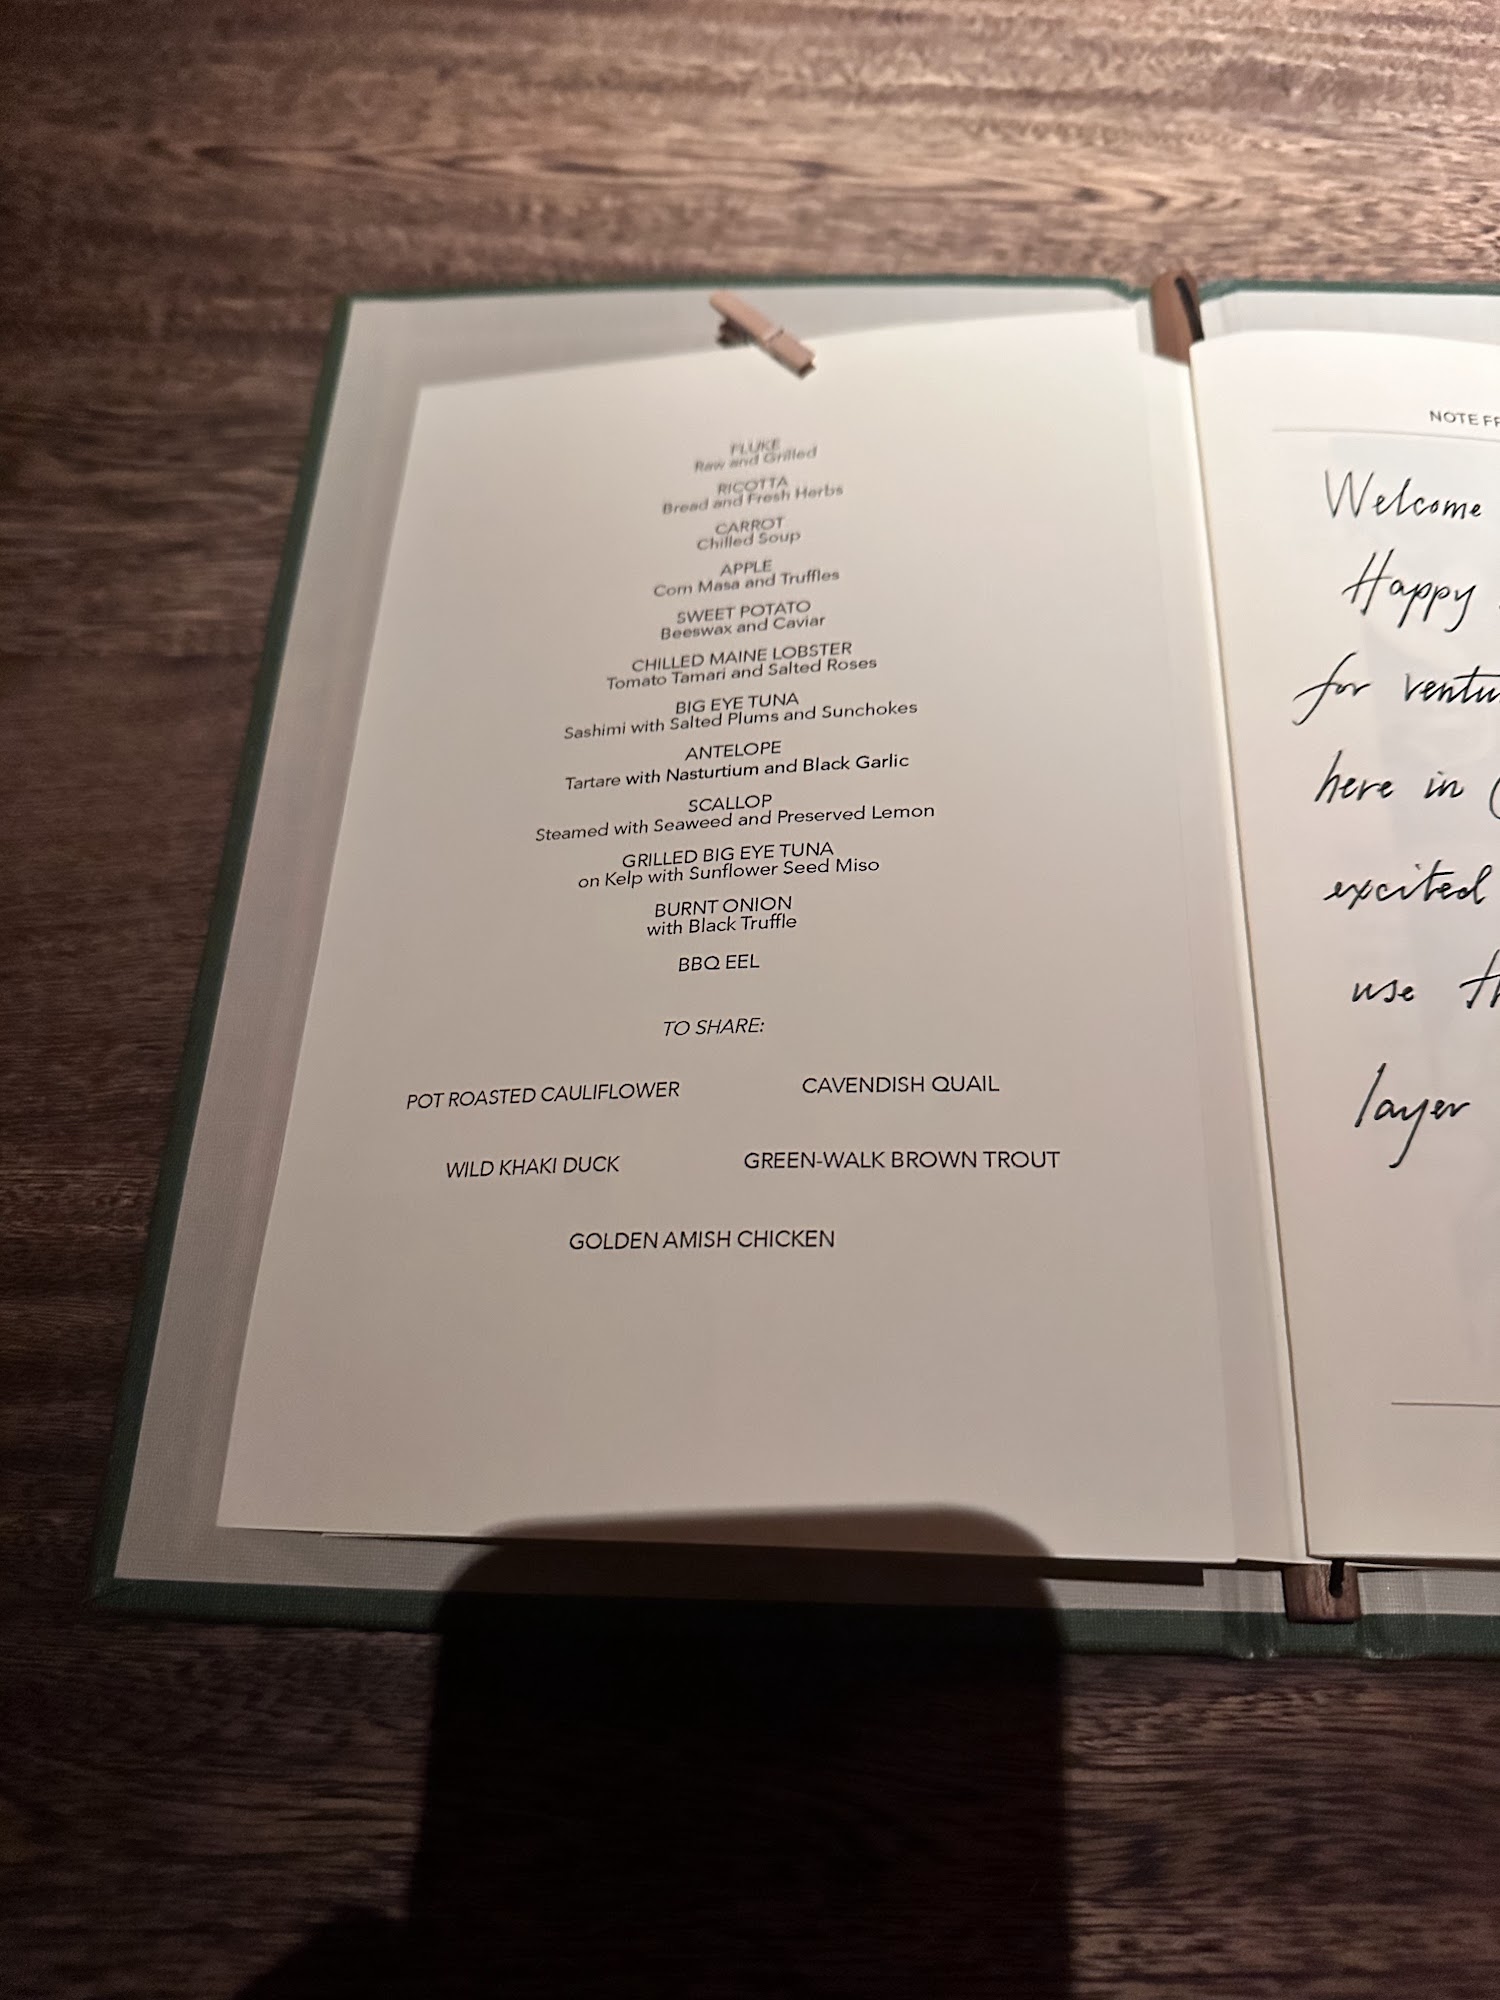 FLUKE
Raw and Grilled
RICOTTA
Bread and Fresh Herbs
CARROT
Chilled Soup
APPLE
Corn Masa and Truffles
SWEET POTATO
Beeswax and Caviar
CHILLED MAINE LOBSTER
Tomato Tamari and Salted Roses
BIG EYE TUNA
Sashimi with Salted Plums and Sunchokes
ANTELOPE
Tartare with Nasturtium and Black Garlic
SCALLOP
Steamed with Seaweed and Preserved Lemon
GRILLED BIG EYE TUNA
on Kelp with Sunflower Seed Miso
BURNT ONION
with Black Truffle
BBQ EEL
TO SHARE:
POT ROASTED CAULIFLOWER
CAVENDISH QUAIL
WILD KHAKI DUCK
GREEN-WALK BROWN TROUT
GOLDEN AMISH CHICKEN
NOTE
Welcome
Happy
for
here in
excited
use
layer